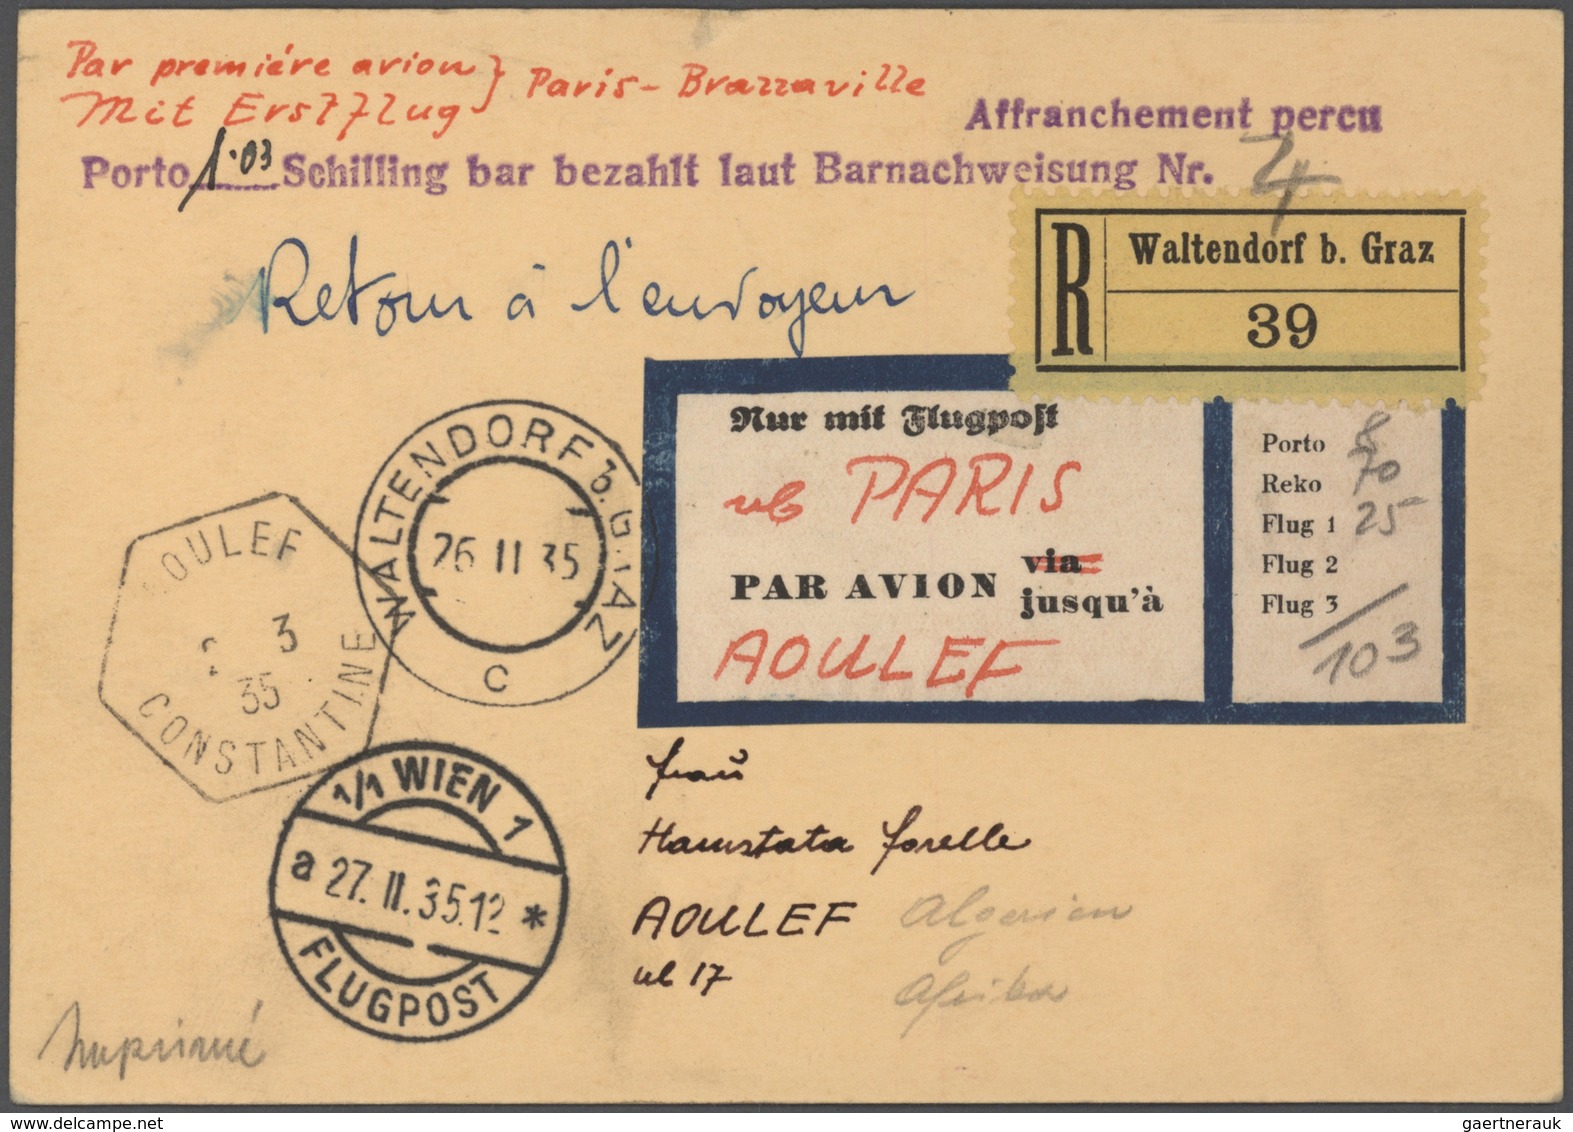 Par premiére avion } Paris - Brazzaville
Mit Erstflug
Affranchement percu
Porto 1·03 Schilling bar bezahlt laut Barnachweisung Nr. 4
Retour à l'envoyeur
R Waltendorf b. Graz
39
Nur mit Flugpost
ab PARIS
PAR AVION via
jusqu'à
AOULEF
Porto 8
Reko 70
Flug 1 25
Flug 2
Flug 3
103
WALTENDORF b. GRAZ
26 II 35
C
AOULEF
2 3
35
CONSTANTINE
1/1 WIEN 1
a 27. II. 35.12 *
FLUGPOST
Frau
Forelle
AOULEF Algerien
Afrika
Imprimé
delcampe.net
gaertnerauk